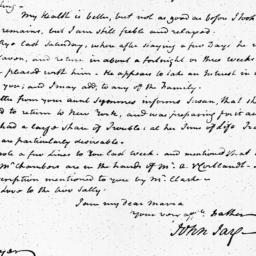 My Health is better, but not as good as before I took
remains, but I am still feeble and relaxed.
Rye last Saturday, where after staying a few Days: he
and return in about a fortnight or three weeks
pleased with him. He appears to take an Interest in
you; and I may add, to any of the Family.
from your aunt Symmes informs Susan, that she
to return to New York, and was preparing
had a large Share of Trouble; at her time of Life
are particularly desireable.
a few Lines to You last week. and mentioned that
Chambers are in the hands of Mr.
mentioned to you by Mr. Clark
Love to the two Sally.
I am my dear Maria
Your very aff.te Father
John Jay